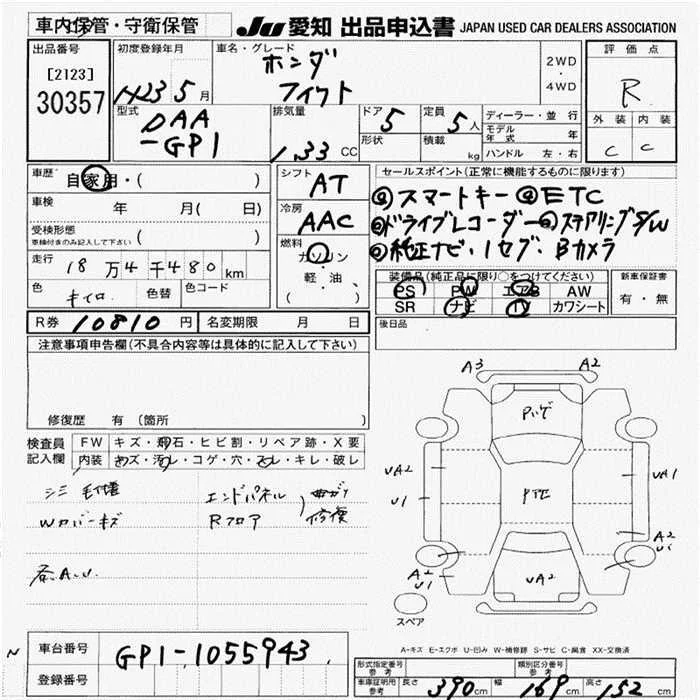 車内保管・守衛保管
JU 愛知 出品申込書 JAPAN USED CAR DEALERS ASSOCIATION
出品番号
[2123]
30357
初度登録年月
H23 5 月
車名・グレード
ホンダ
フィット
2WD
・
4WD
評価点
R
外装 内装
C C
型式
DAA
-GP1
排気量
1.33 CC
ドア 5
形状
定員 5 人
積載 kg
ディーラー・並行
モデル年式 年
ハンドル 左・右
車歴 自家用・( )
車検 年 月( 日)
受検形態
車検付きのみ記入して下さい ( )
走行 18 万 4 千 480 km
色 キイロ 色替 色コード
シフト AT
冷房 AAC
燃料
ガソリン
軽・油
( )
セールスポイント(正常に機能するものに限ります)
◎スマートキー ◎ETC
◎ドライブレコーダー ◎ステアリングS/W
◎純正ナビ・1セグ・Bカメラ
装備品(純正品に限り○をつけてください)
PS PW エアB AW
SR ナビ TV カワシート
新車保証書
有・無
R券 10810 円 名変期限 月 日
後日品
注意事項申告欄(不具合内容等は具体的に記入して下さい)
修復歴 有 (箇所 )
検査員
記入欄
FW キズ・飛石・ヒビ割・リペア跡・X要
内装 キズ・汚レ・コゲ・穴・スレ・キレ・破レ
シミ
Wカバーキズ
各A.U.
エンドパネル
Rフロア
曲がり
修復
A3 A2
UA2
U1
UA1
A2
A2
U1
UA2
スペア
A-キズ E-エクボ U-凹み W-補修跡 S-サビ C-腐食 XX-交換済
車台番号 GP1-1055943
登録番号
形式指定番号
参考
類別区分番号
参考
車庫証明用
参考
長さ 390 cm 幅 169 cm 高さ 152 cm